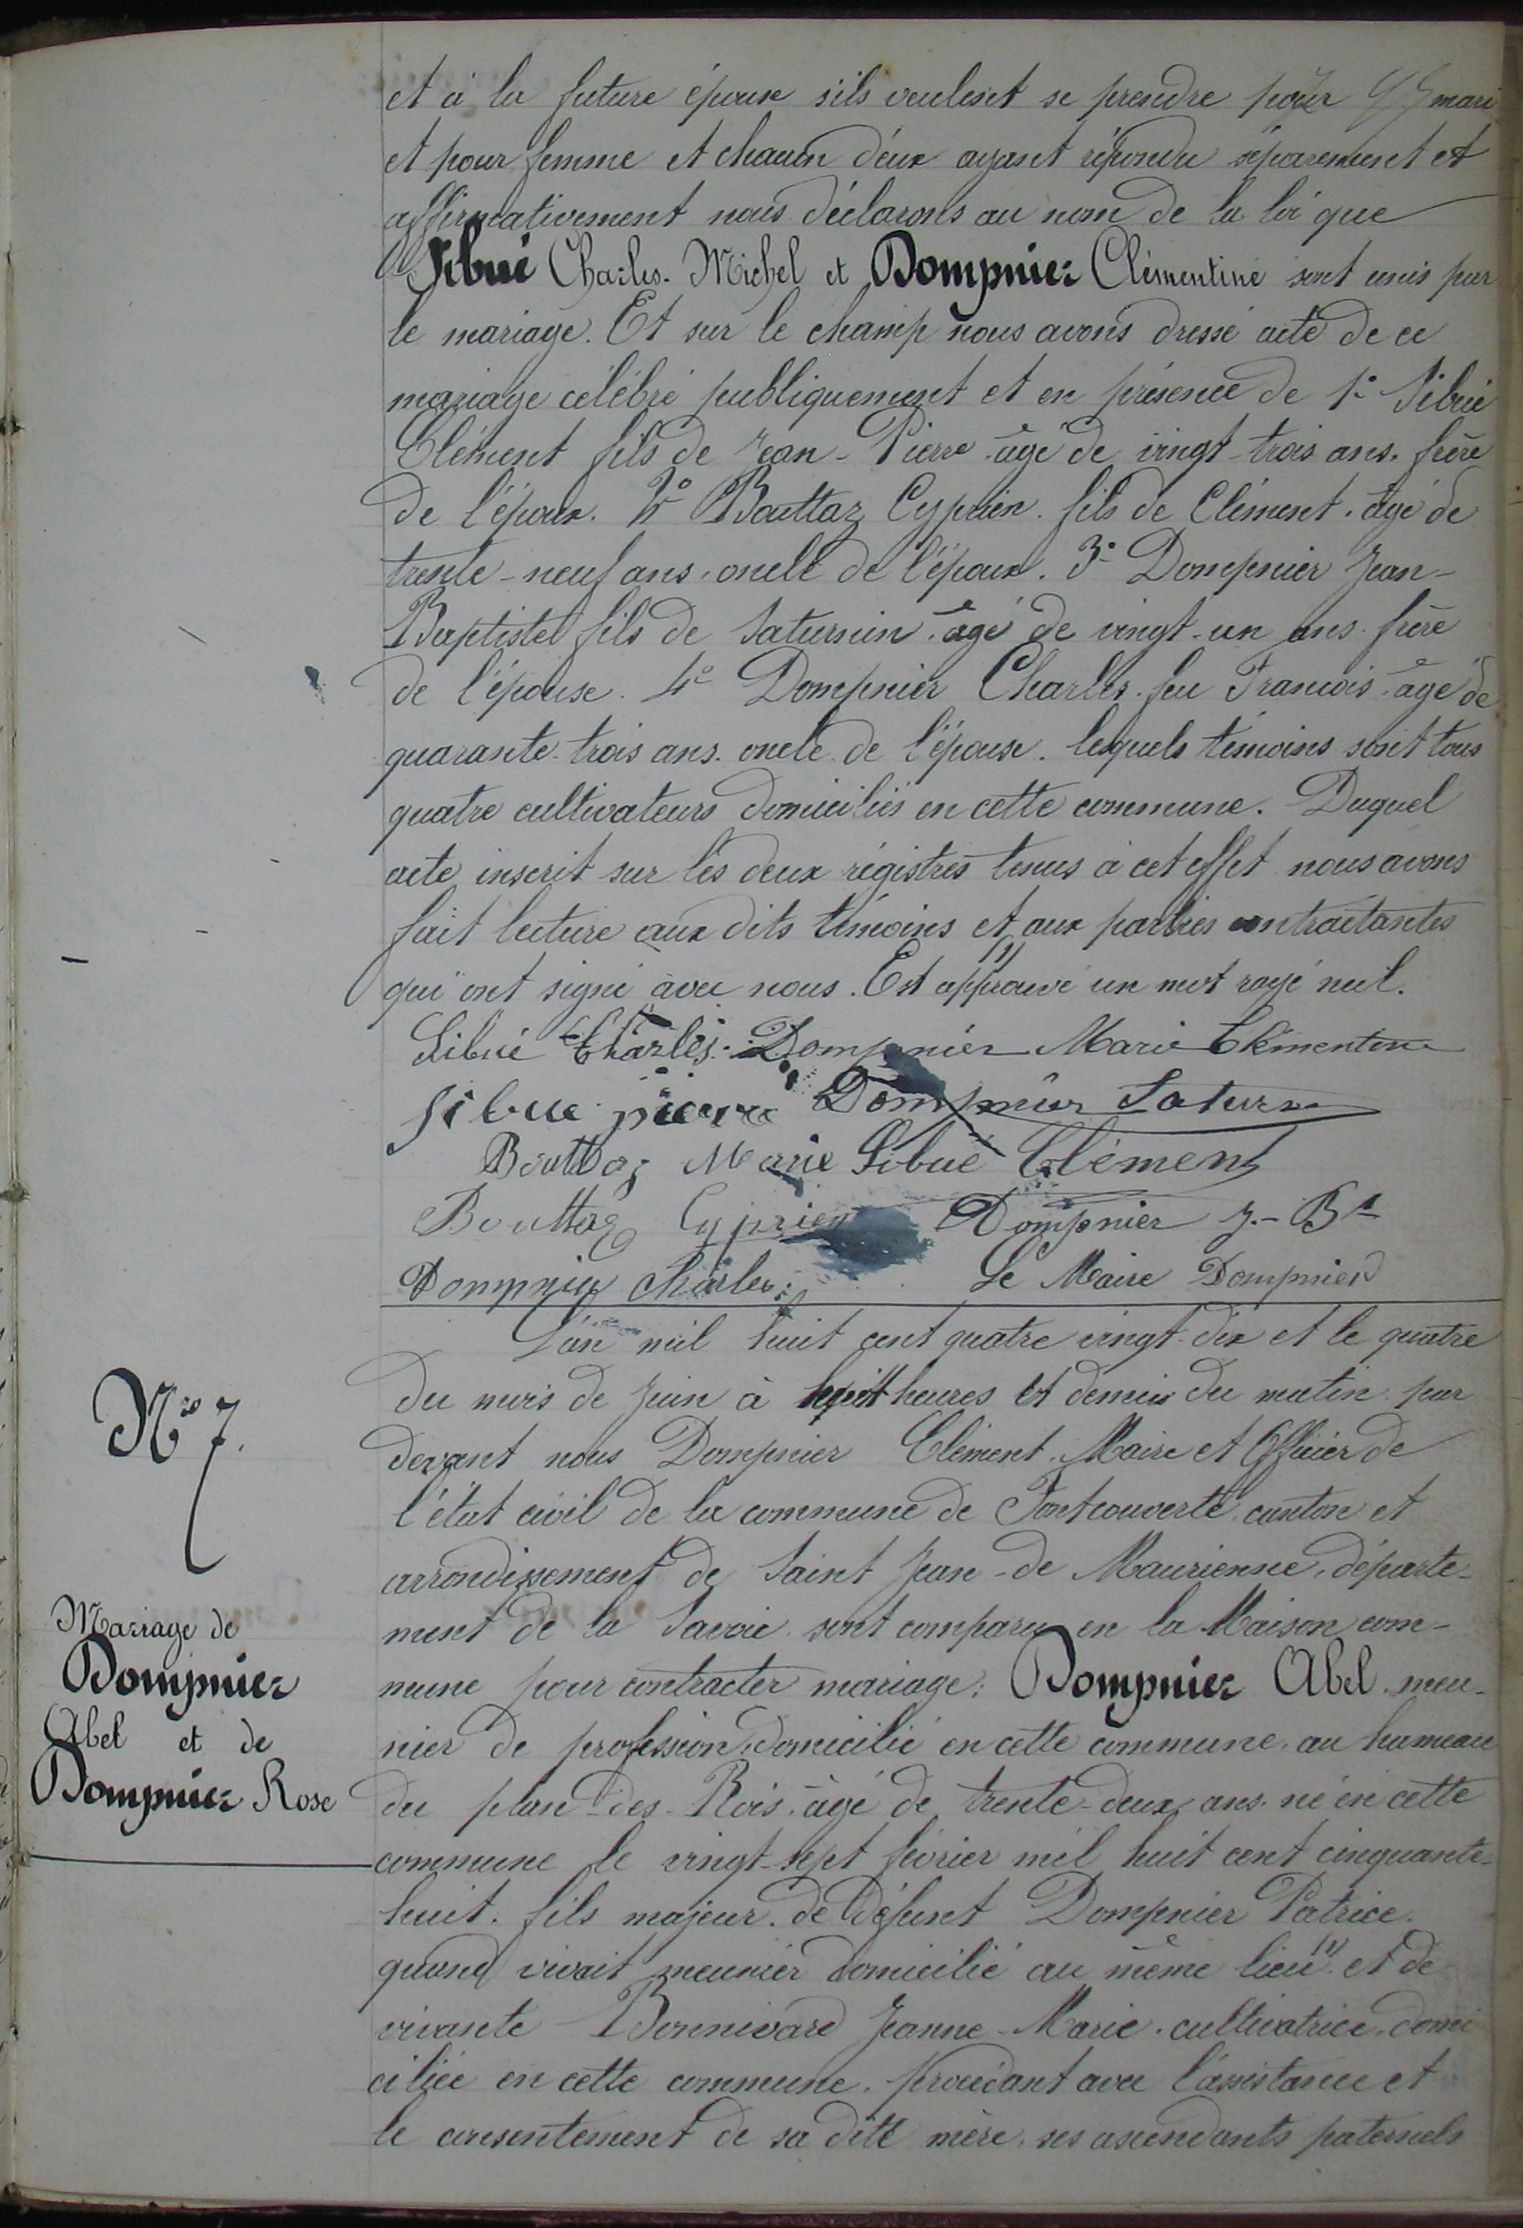 et à la future épouse s'ils veulent se prendre pour mari
et pour femme et chacun d'eux ayant répondu séparement et
affirmativement nous déclarons au nom de la loi que
Sibué Charles-Michel et Dompnier Clémentine sont unis par
le mariage. Et sur le champ nous avons dressé acte de ce
mariage célébré publiquement et en présence de 1° Sibué
Clément fils de Jean-Pierre âgé de vingt-trois ans. frère
de l'époux. 2° Bouttaz Cyprien. fils de Clément. âgé de
trente-neuf ans. oncle de l'époux. 3° Dompnier Jean-
Baptiste fils de Saturnin. âgé de vingt-un ans. frère
de l'épouse. 4° Dompnier Charles. feu François. âgé de
quarante-trois ans. oncle de l'épouse. lesquels témoins sont tous
quatre cultivateurs domiciliés en cette commune. Duquel
acte inscrit sur les deux régistres tenus à cet effet nous avons
fait lecture aux dits témoins et aux parties contractantes
qui ont signé avec nous. Est approuvé un mot rayé nul.
Sibué Charles. Dompnier Marie Clémentine
Sibue pierre Dompnier Saturn
Bouttaz Marie Sibué Clément
Bouttaz Cyprien Dompnier J.-Bte
Dompnier Charles. Le Maire Dompnier
L'an mil huit cent quatre vingt-dix et le quatre
du mois de Juin à huit heures et demie du matin par
devant nous Dompnier Clément. Maire et Officier de
l'état civil de la commune de Fontcouverte. canton et
arrondissement de Saint Jean-de Maurienne. départe-
ment de la Savoie sont comparu en la Maison com-
mune pour contracter mariage: Dompnier Abel. meu-
nier de profession. domicilié en cette commune. au hameau
du plan-des-Rois. âgé de trente-deux ans. né en cette
commune le vingt-sept février mil huit cent cinquante-
huit. fils majeur. de défunt Dompnier Patrice.
quand vivait meunier domicilié au même lieu (1) et de
vivante Bonnivard Jeanne-Marie. cultivatrice. domi
ciliée en cette commune. procédant avec l'assistance et
le consentement de sa dite mère. ses ascendants paternels
N° 7.
Mariage de
Dompnier
Abel et de
Dompnier Rose